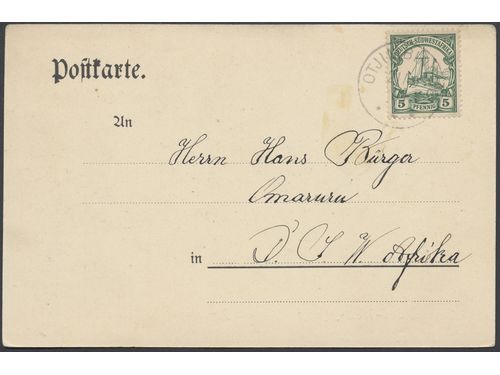 Postkarte.
DEUTSCH-SÜDWESTAFRIKA
5 PFENNIG 5
An
Herrn Hans Bürger
Omaruru
in D. S. W. Afrika